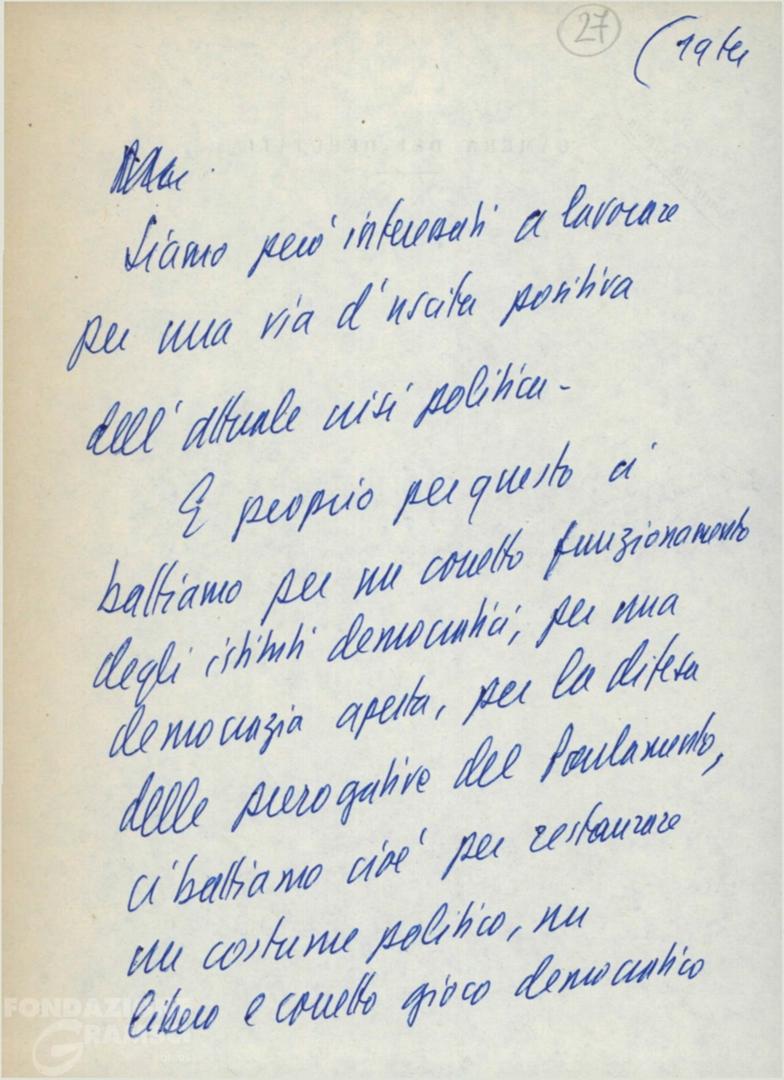 27
Siamo però interessati a lavorare
per una via d'uscita positiva
dell'attuale crisi politica -
E proprio per questo ci
battiamo per un corretto funzionamento
degli istituti democratici, per una
democrazia aperta, per la difesa
delle prerogative del Parlamento,
ci battiamo cioè per restaurare
un costume politico, un
libero e corretto gioco democratico
FONDAZIONE
GRAMSCI